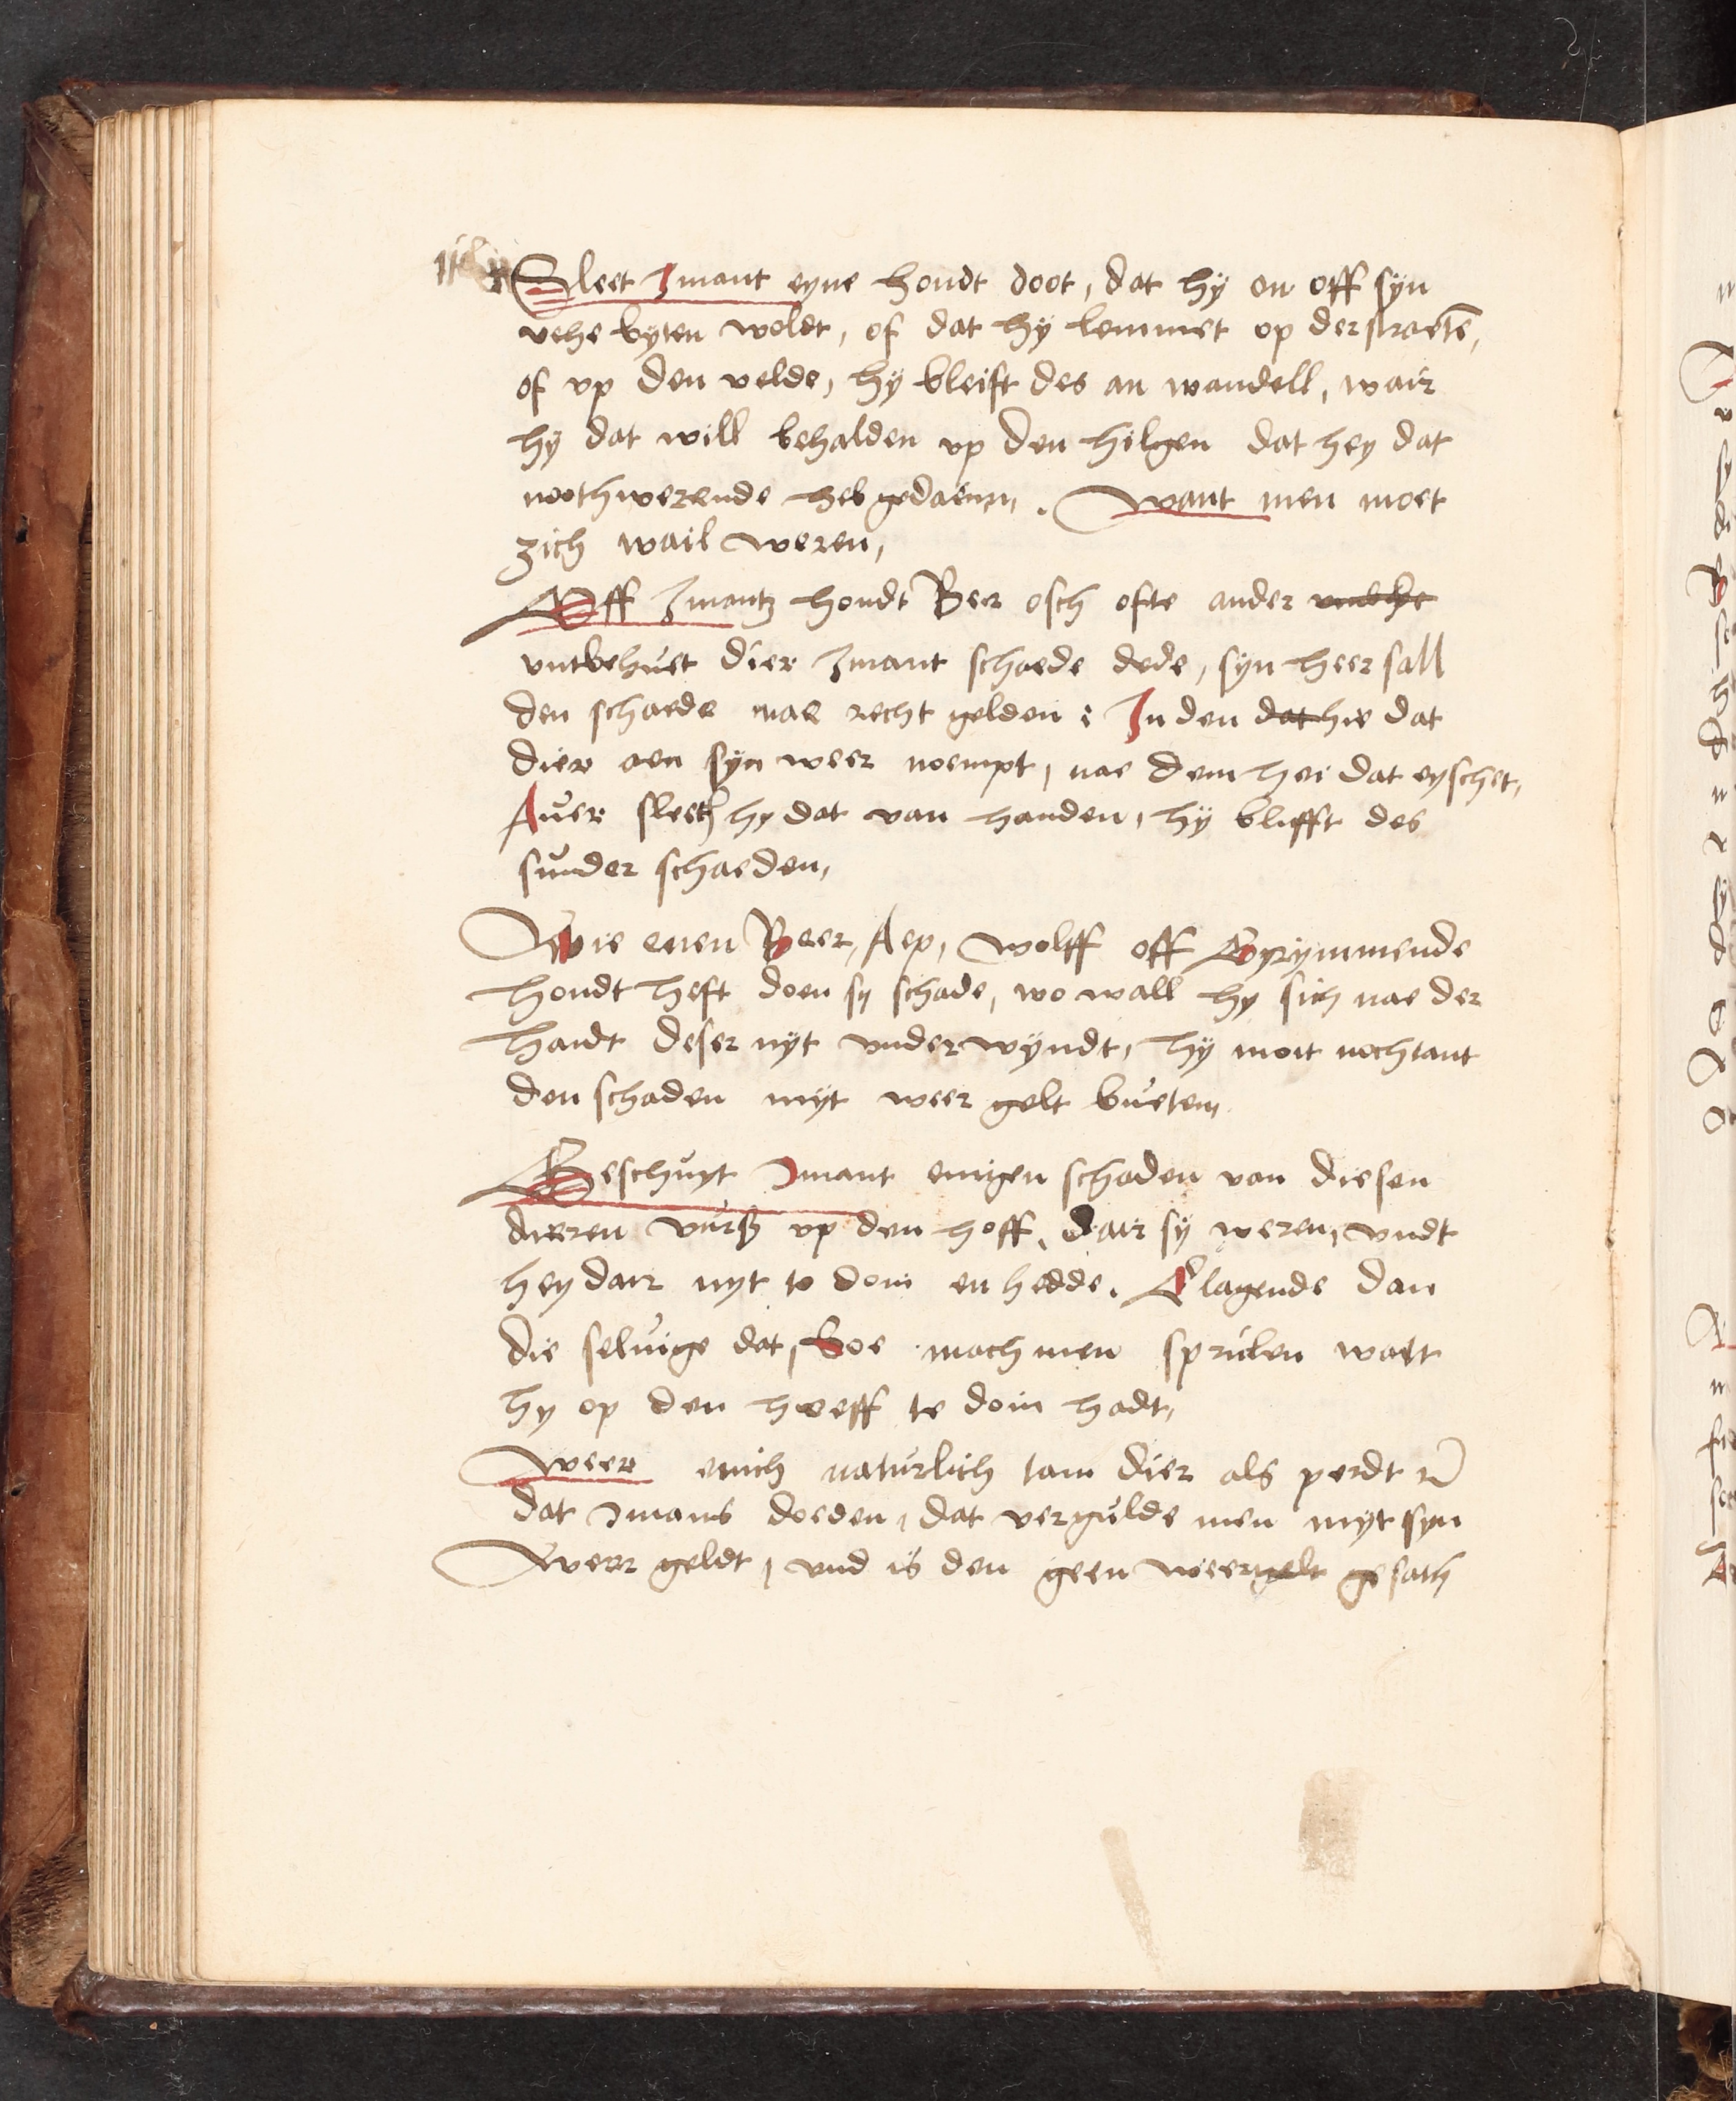 Sleet Imant eyne hondt doot, dat hÿ on off syn
vehe byten woldt, of dat hÿ lemmet op der straete,
of vp den velde, hÿ bleift des an wandell, wair
hÿ dat will behalden vp den hilgen dat hey dat
noothwerende heb gedaenn. Want men moet
zich wail weren,
Off Imantz hondt Beer osch ofte ander
vntbehuet dier Imant schaede dede, syn heer sall
den schaede nae recht gelden : In den dat hie dat
dier aen syn weer noempt, nae dem hei dat eyschet,
Auer sleeth hy dat van handen, hÿ blifft des
sunder schaeden,
Wie enen Beer, Aep, Wolff off Grymmende
hondt heft doen sy schade, wo wall hy sich nae der
handt deser nyt vnderwÿndt, hÿ moit nochtant
den schaden mÿt weer gelt bueten,
Geschuyt Imant enigen schaden van diesen
dieren vurß vp den hoff, dair sÿ weren, vndt
hey dair nyt to doin en hedde. Clagende dan
die seluige dat, Soe mach men spreken watt
hy op den hoeff te doin hadt,
Weer enich naturlich tam dier als perdt rc
dat Imans doeden, dat vergulde men myt syn
Weer geldt, vnd is den geen weergelt gesath